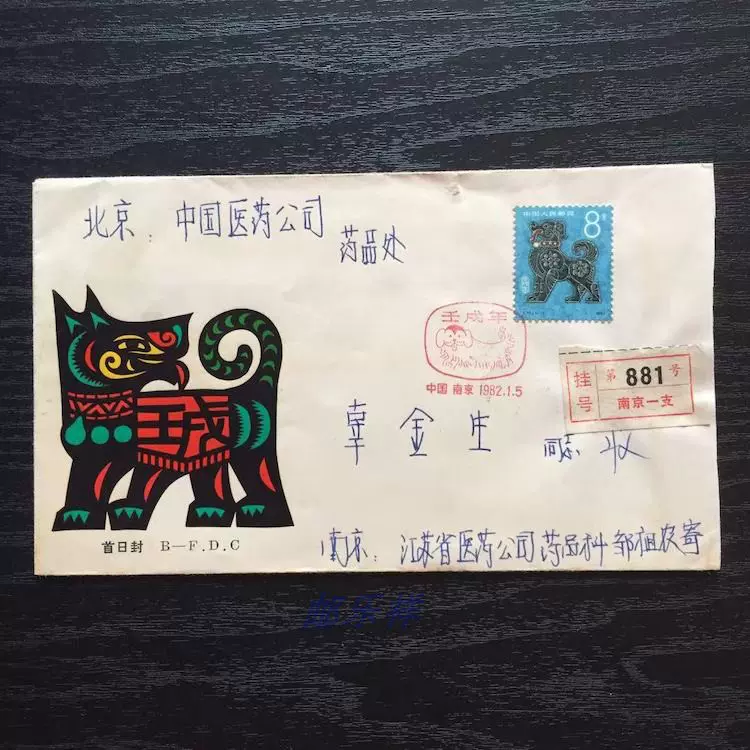 北京：中国医药公司
药品处
中国人民邮政
8分
壬戌年
中国 南京 1982.1.5
挂号 第881号
南京一支
章金生 同志 收
壬戌
首日封 B—F.D.C
南京：江苏省医药公司药品科邹祖农寄